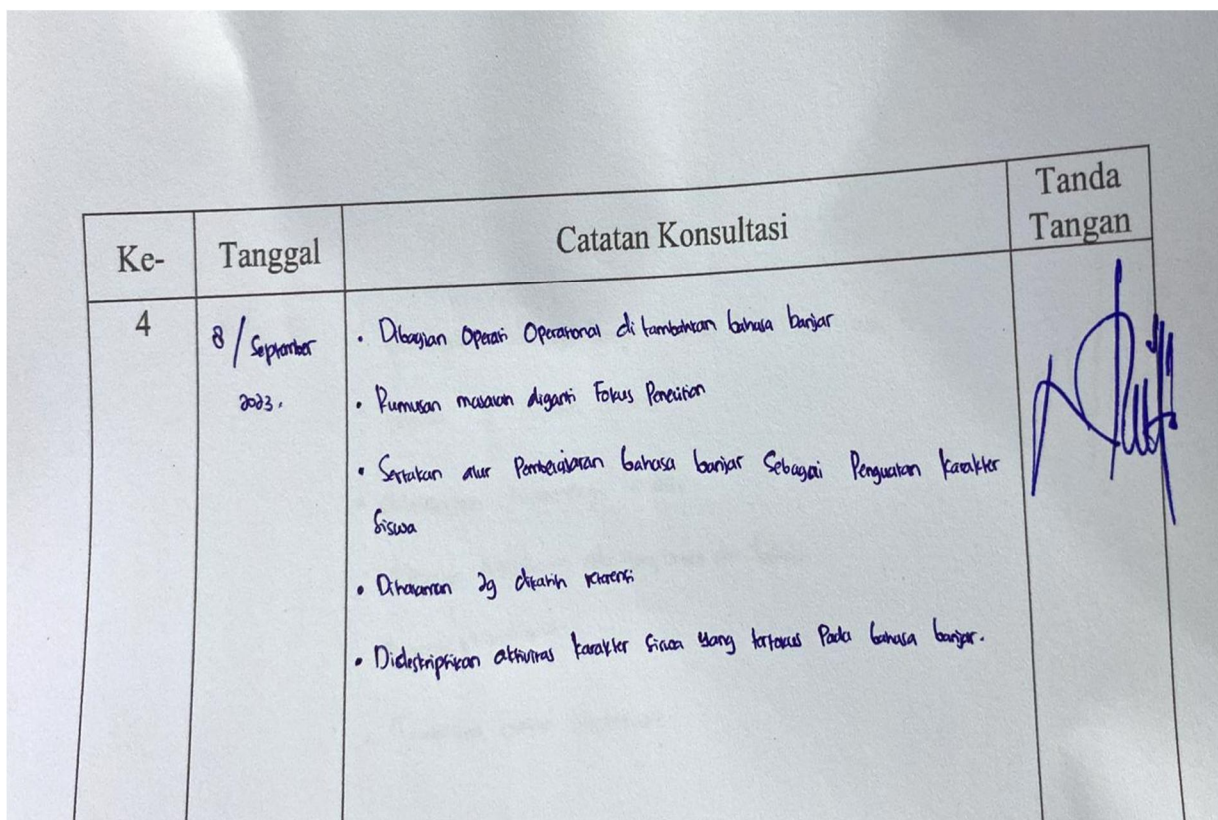 Ke- Tanggal Catatan Konsultasi Tanda Tangan
4 8/September 2023.
• Dibagian Operasi Operasional di tambahkan bahasa banjar
• Rumusan masalah diganti Fokus Penelitian
• Sertakan alur Pembelajaran bahasa banjar Sebagai Penguatan karakter
Siswa
• Dihalaman 29 dikasih referensi
• Dideskripsikan aktivitas karakter siswa yang terfokus Pada bahasa banjar.